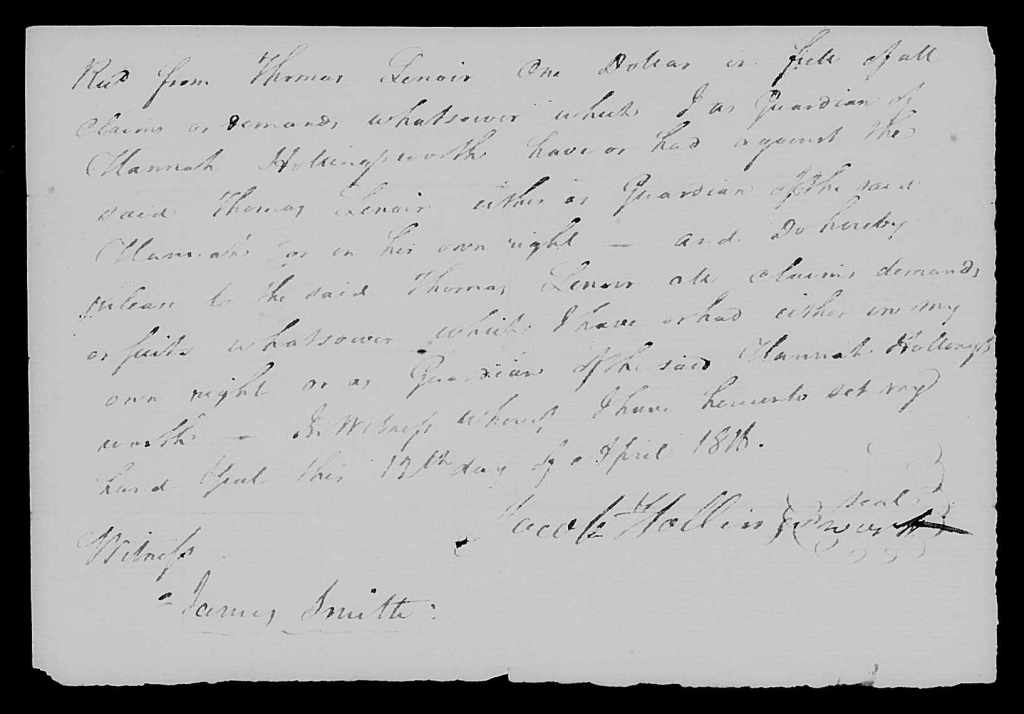 Recd from Thomas Lenoir One Dollar in full of all
claims or demands whatsower which I as Guardian of
Hannah Hollingsworth have or had against the
said Thomas Lenoir either as Guardian of the said
Hannah or in his own right — and do hereby
release to the said Thomas Lenoir all claims demands
or suits whatsower which I have or had either in my
own right or as Guardian of the said Hannah Hollings
worth — In Witness whereof I have hereunto set my
hand & seal this 17th day of April
Jacob Hollingsworth seal
Witness
James Smith